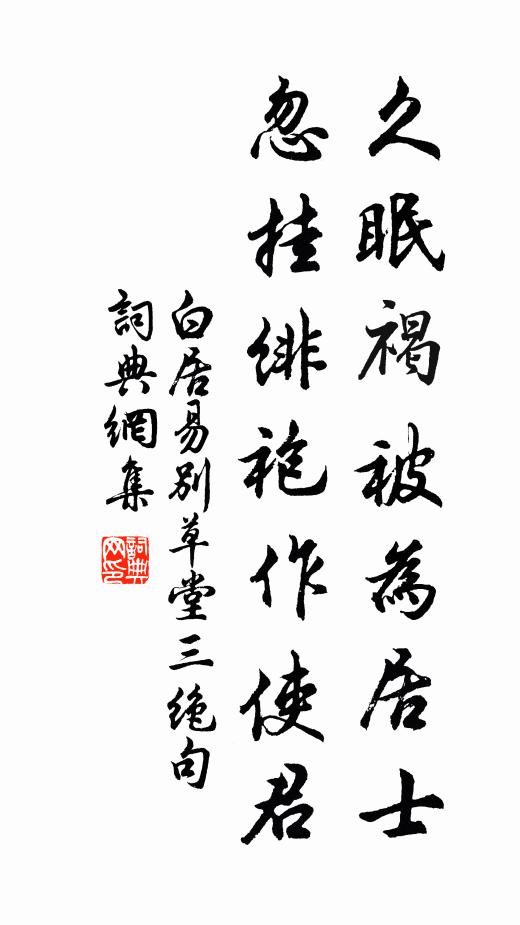 久眠褐被為居士
忽挂緋袍作使君
白居易別草堂三絶句
詞典網集
詞典
网印